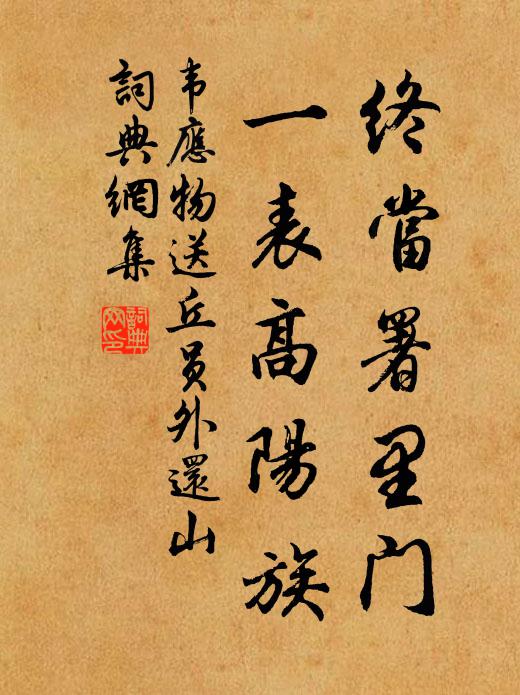 終當署里门
一表高陽族
韦應物送丘员外還山
詞典網集
詞典网印